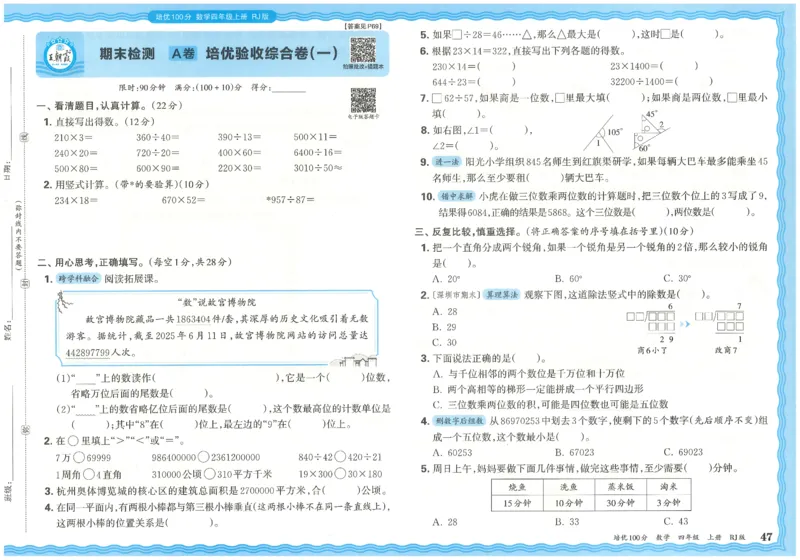 培优100分 数学四年级上册 RJ版
【答案见P69】
王朝霞
期末检测 A卷 培优验收综合卷(一)
拍照批改+错题本
限时:90分钟 满分:(100+10)分 得分:
电子版答题卡
一、看清题目,认真计算。(22分)
1. 直接写出得数。(12分)
210×3= 360÷40= 390÷13= 500×11=
240×20= 720÷20= 400×60= 6400÷16=
500×80= 600×90= 220×30= 3010÷50≈
2. 用竖式计算。(带*的要验算)(10分)
234×18= 670×52= *957÷87=
二、用心思考,正确填写。(每空1分,共28分)
1. 跨学科融合 阅读拓展课。
“数”说故宫博物院
故宫博物院藏品一共1863404件/套,其深厚的历史文化吸引着无数
游客。据统计,截至2025年6月11日,故宫博物院网站的访问总量达
442897799人次。
(1)“____”上的数读作( ),它是一个( )位数,
省略万位后面的尾数是( )。
(2)“____”上的数省略亿位后面的尾数是( ),这个数最高位的计数单位是
( );其中“8”在( )位上,最左边的“9”在( )位上。
2. 在○里填上“>”“<”或“=”。
7万○69999 986400000○2361200000 840÷42○420÷21
1周角○4直角 310000公顷○310平方千米 19×300○30×180
3. 杭州奥体博览城的核心区的建筑总面积是2700000平方米,合( )公顷。
4. 在同一平面内,有两根小棒都与第三根小棒垂直(这两根小棒不在同一条直线上),
这两根小棒的位置关系是( )。
5. 如果□÷28=46……△,那么△最大是( ),这时□是( )。
6. 根据23×14=322,直接写出下列各题的得数。
230×14=( ) 23×1400=( )
644÷23=( ) 32200÷1400=( )
7. □62÷57,如果商是一位数,□里最大填( );如果商是两位数,□里最小
填( )。
8. 如右图,∠1=( ),
∠2=( )。
1 105° 45° 2 60°
9. 进一法 阳光小学组织845名师生到红旗渠研学,如果每辆大巴车最多能乘坐45
名师生,那么至少要租( )辆大巴车。
10. 错中求解 小虎在做三位数乘两位数的计算题时,把三位数个位上的3写成了9,
结果得6084,正确的结果是5868。这个三位数是( ),两位数是( )。
三、反复比较,慎重选择。(将正确答案的序号填在括号里)(10分)
1. 把一个直角分成两个锐角,如果一个锐角是另一个锐角的2倍,那么较小的锐角
是( )。
A. 20° B. 60° C. 30°
2. [深圳市期末] 算理算法 观察下图,这道除法竖式中的除数是( )。
A. 28
B. 29
C. 30
6 7
2 9 1
商6小了 改商7
3. 下面说法正确的是( )。
A. 与千位相邻的两个数位是千万位和十万位
B. 两个高相等的梯形一定能拼成一个平行四边形
C. 三位数乘两位数的积,可能是四位数也可能是五位数
4. 删数字后组数 从86970253中划去3个数字,使剩下的5个数字(先后顺序不变)组
成一个五位数,这个数最小是( )。
A. 60253 B. 67023 C. 69023
5. 周日上午,妈妈要做下面几件事情,做完这些事情,至少需要( )分钟。
烧鱼 洗鱼 蒸米饭 淘米
15分钟 10分钟 30分钟 3分钟
A. 28 B. 33 C. 43
培优100分 数学 四年级 上册 RJ版 47
姓名:
班级:
(弥封线内不要答题)